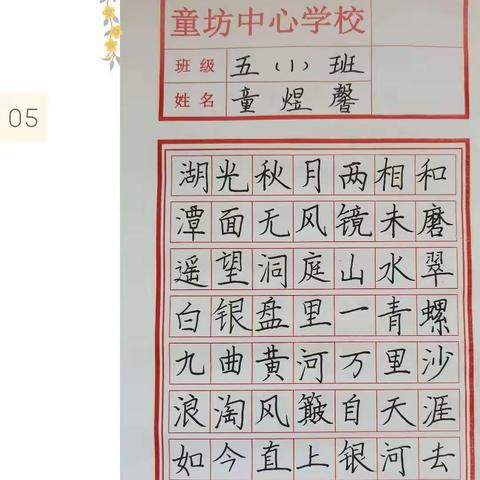 童坊中心学校
班级 五(1)班
姓名 童煜馨
05
湖光秋月两相和
潭面无风镜未磨
遥望洞庭山水翠
白银盘里一青螺
九曲黄河万里沙
浪淘风簸自天涯
如今直上银河去